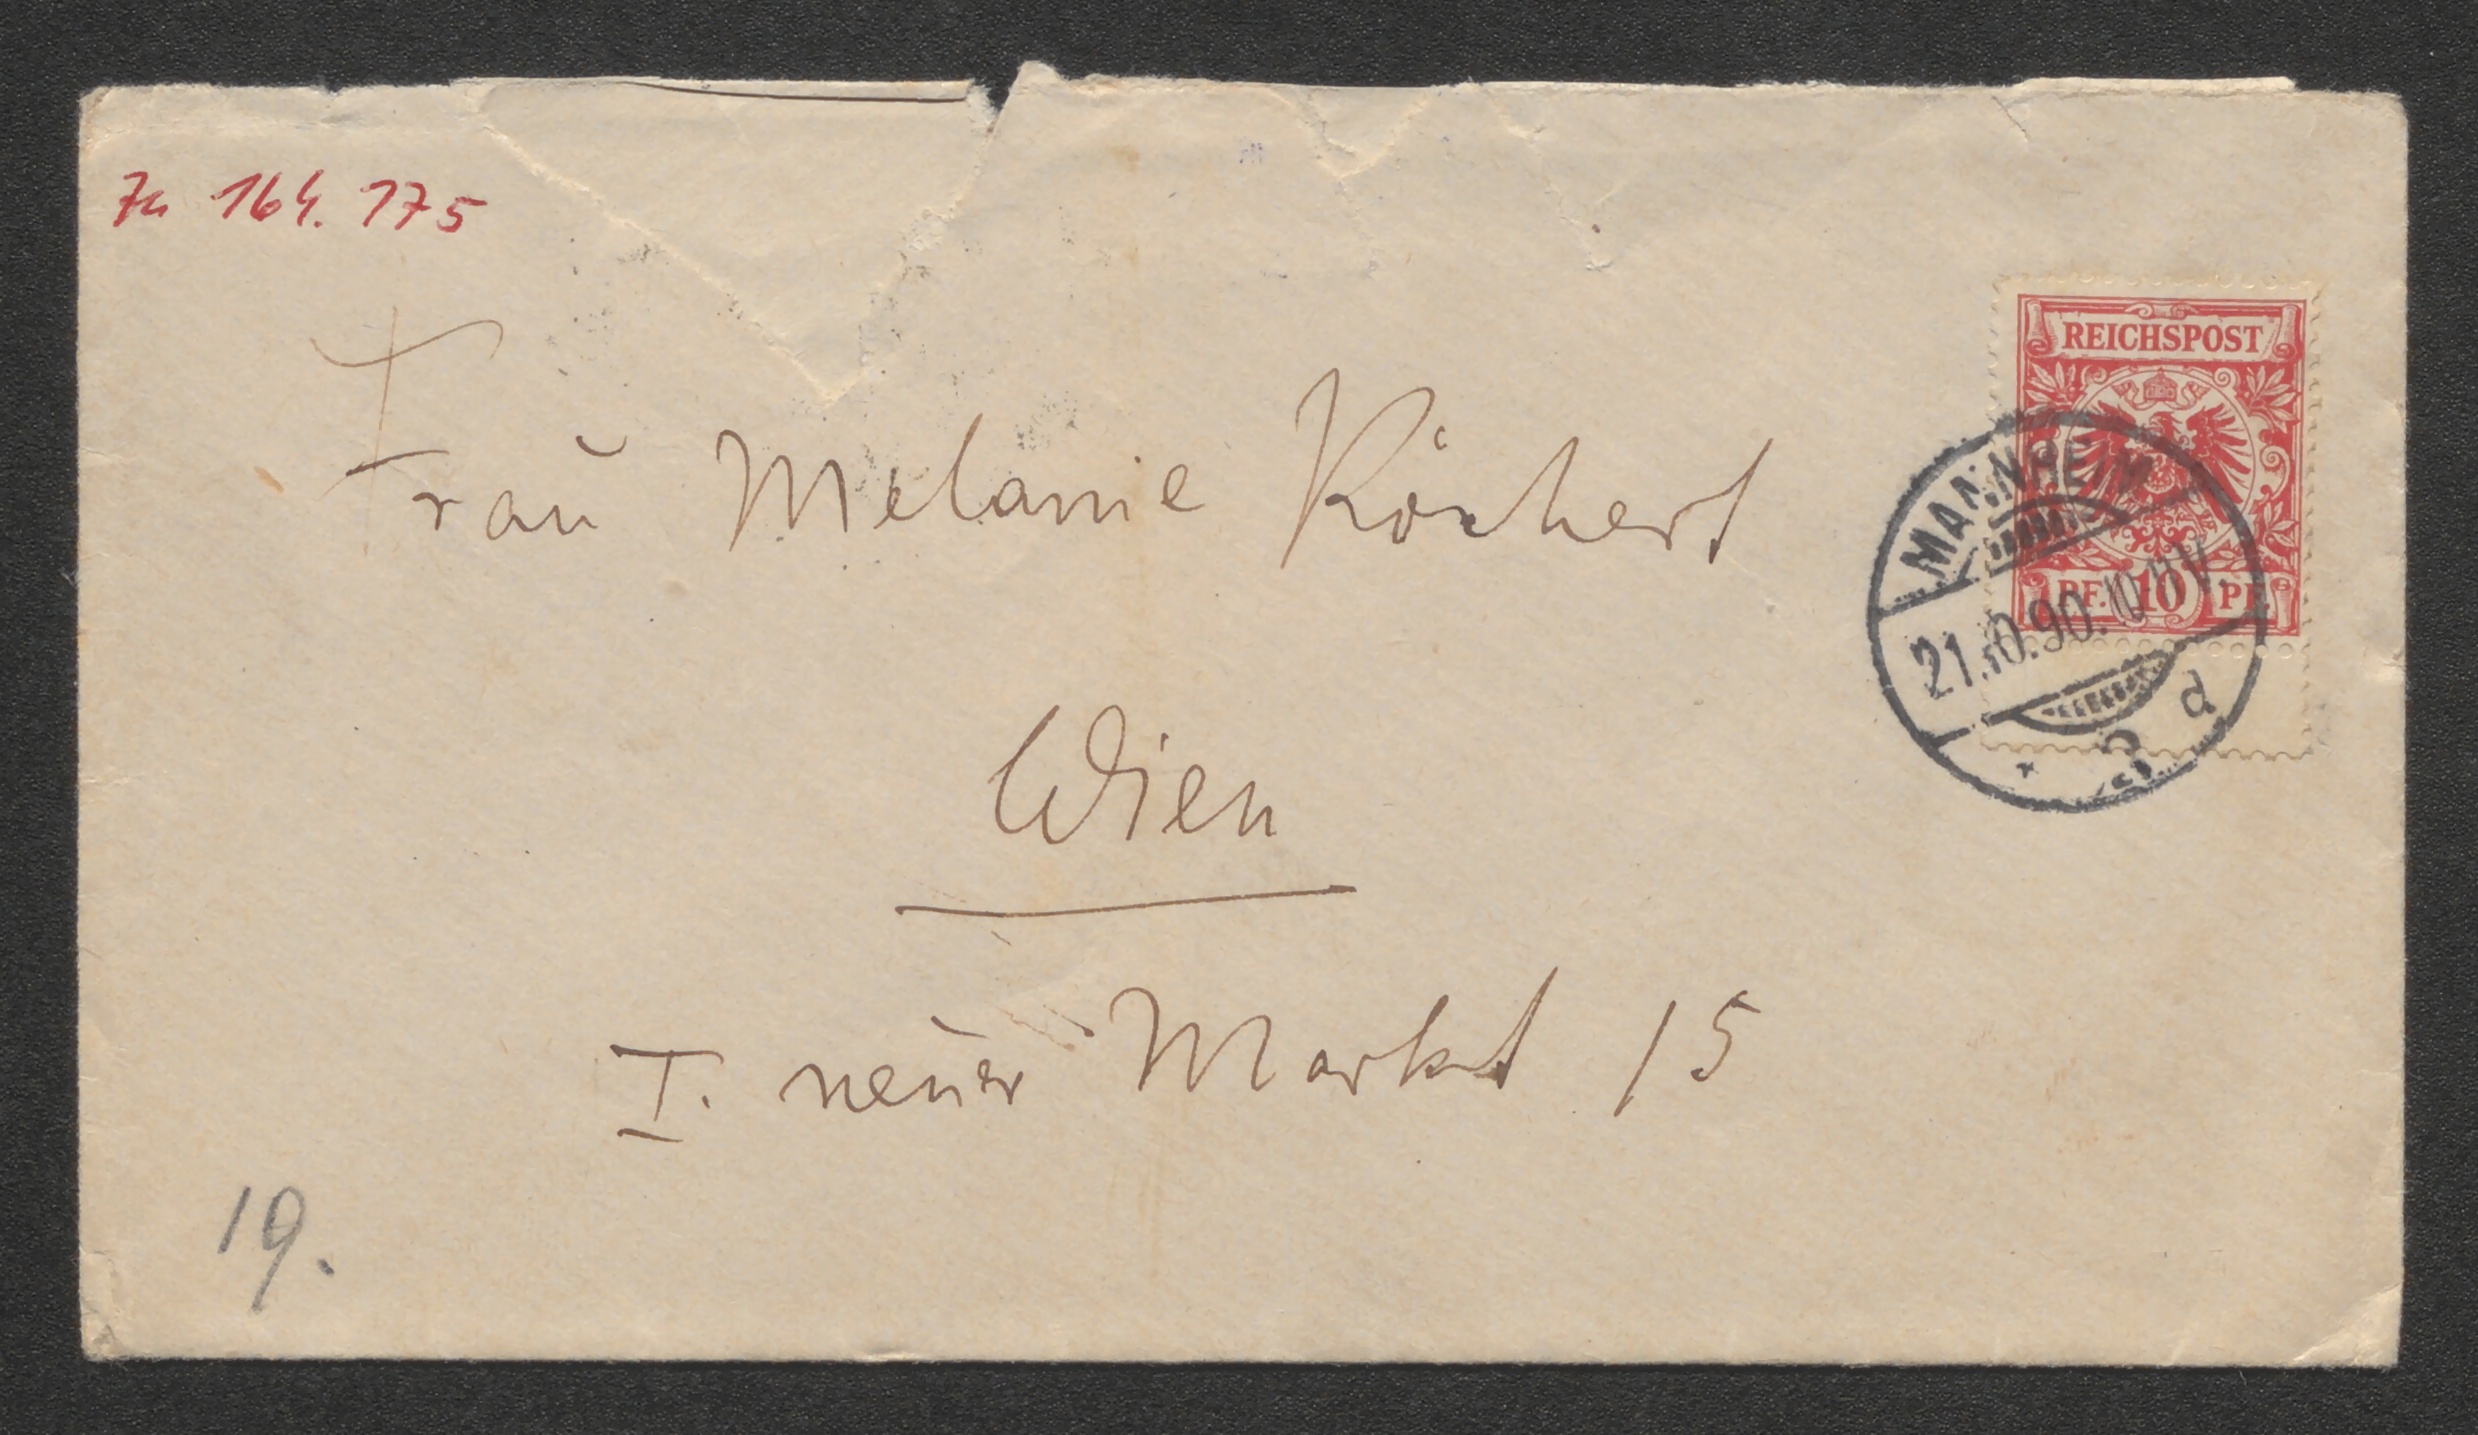 Ja 164.175
REICHSPOST
PF. 10 PF.
MANNHEIM
21.10.90.10-11V.
* 2 d
Frau Melanie Köchert
Wien
I. neuer Markt 15
19.